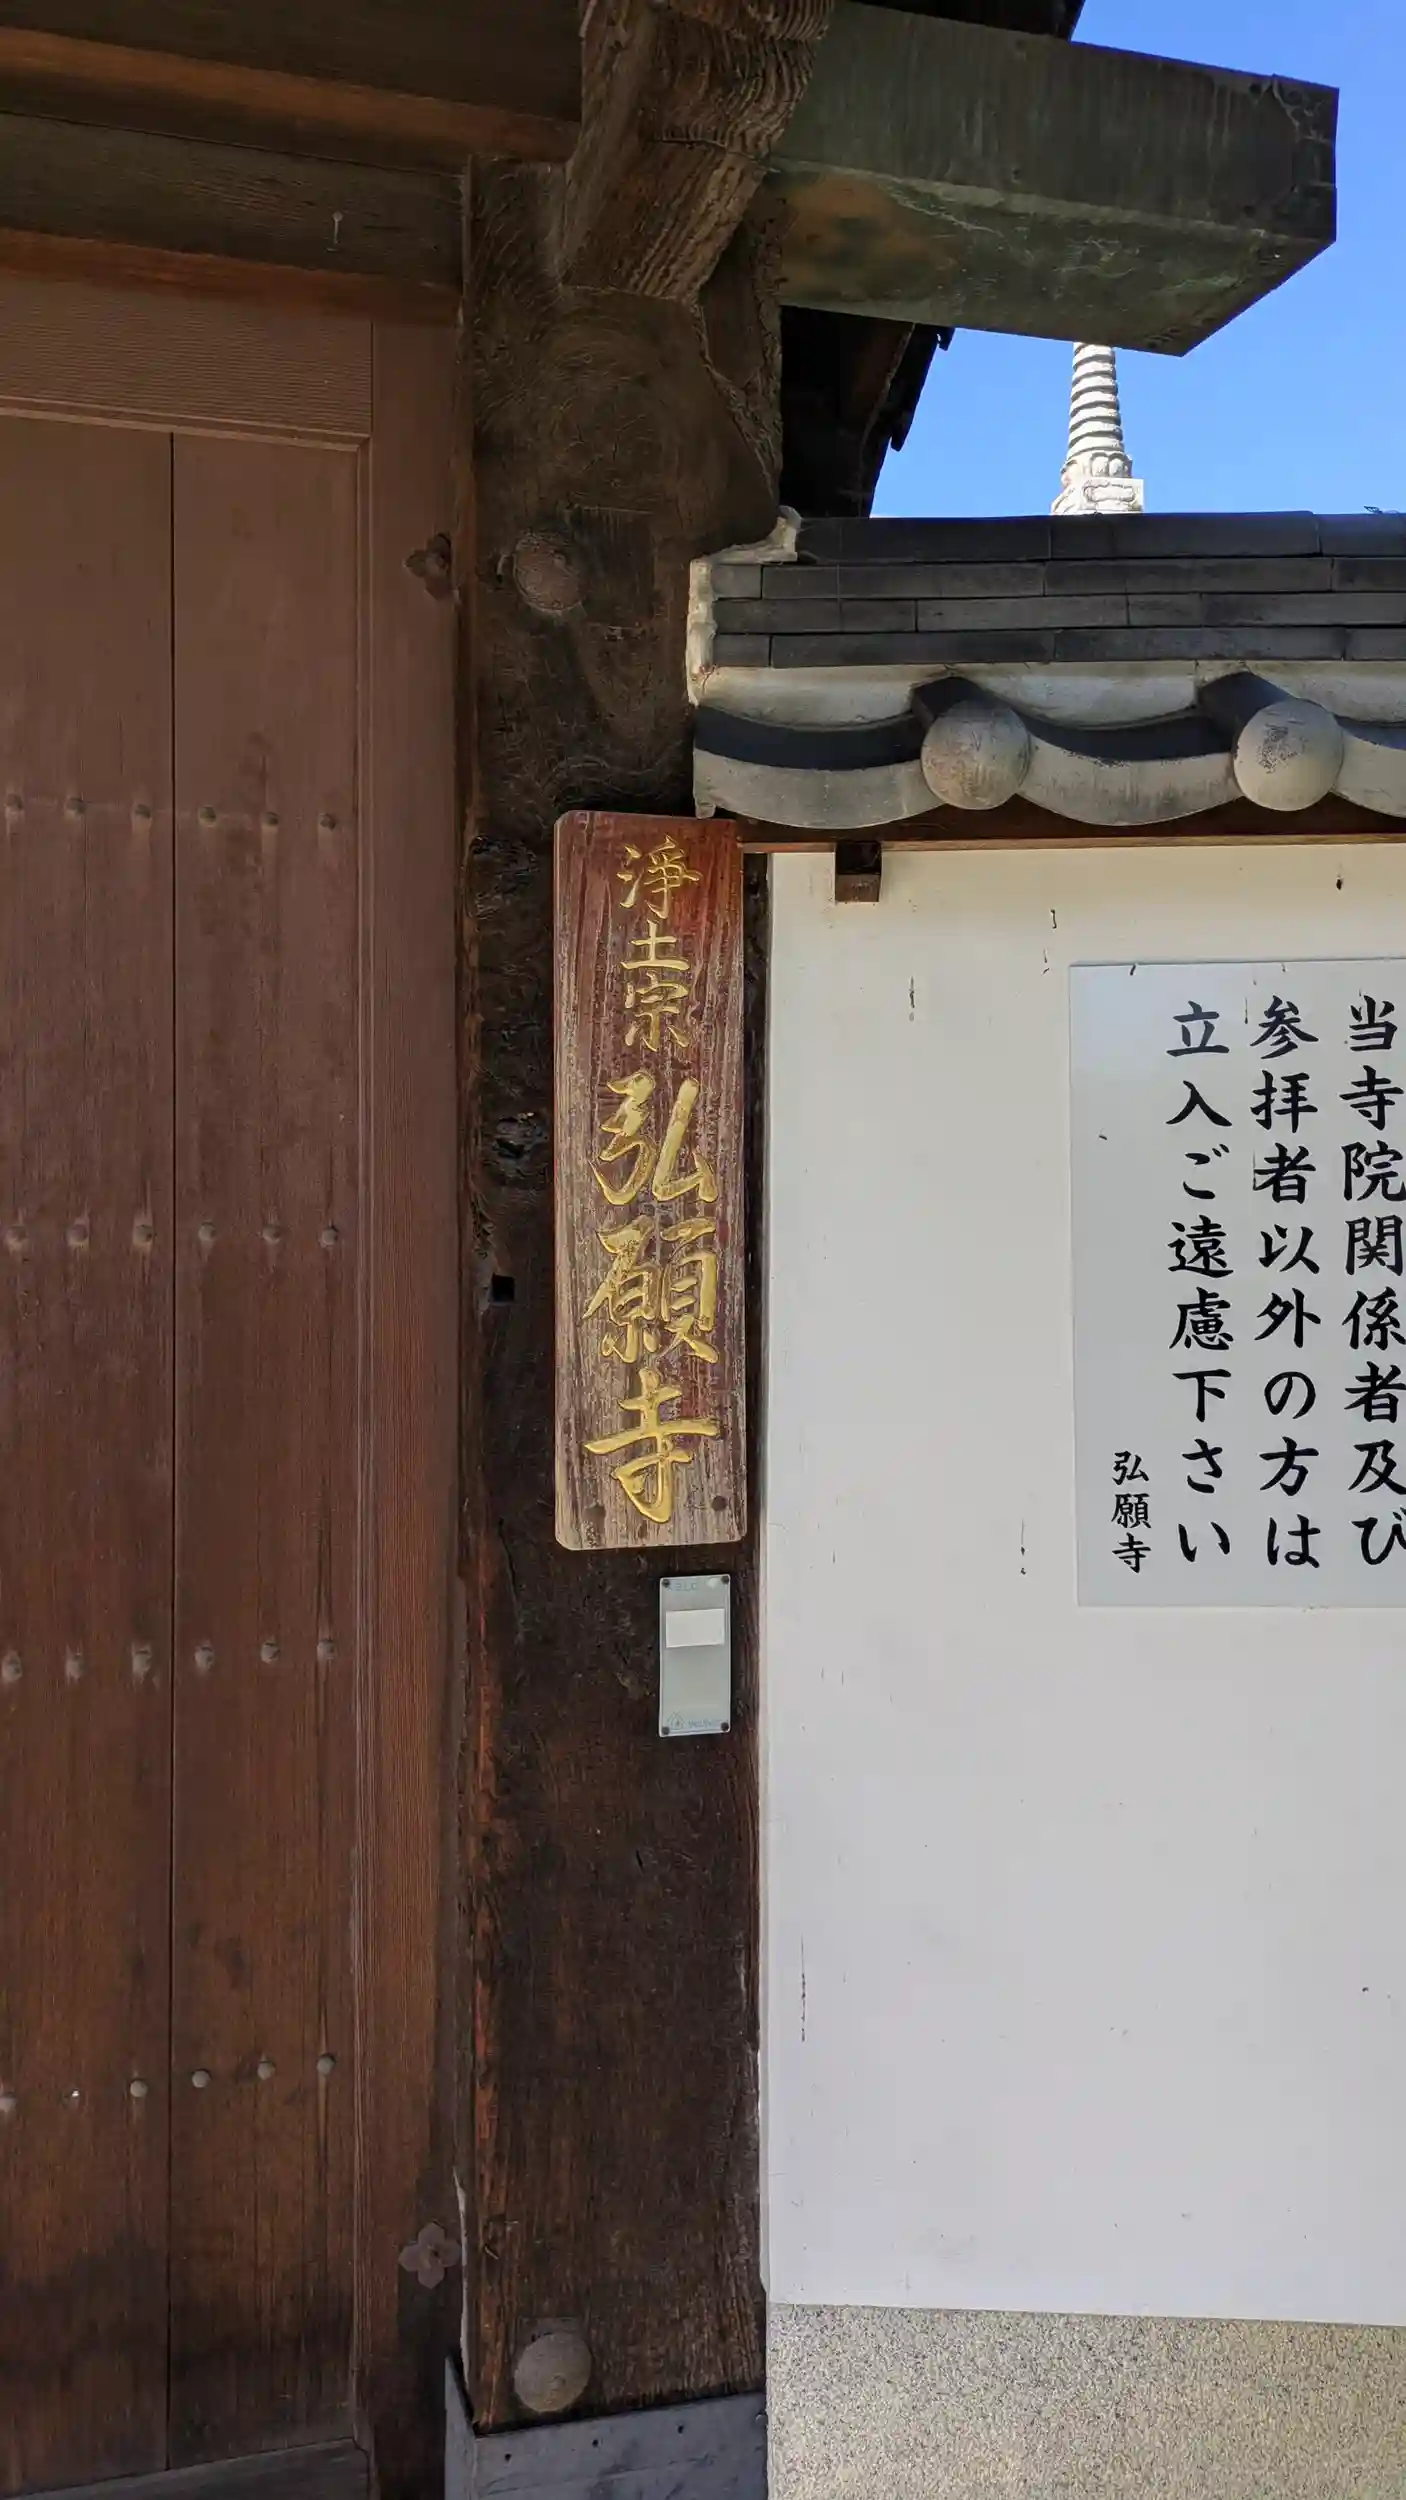 淨土宗 弘願寺
当寺院関係者及び
参拝者以外の方は
立入ご遠慮下さい
弘願寺